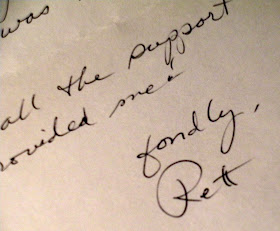 was
all the support
rovided me!
fondly,
Rett